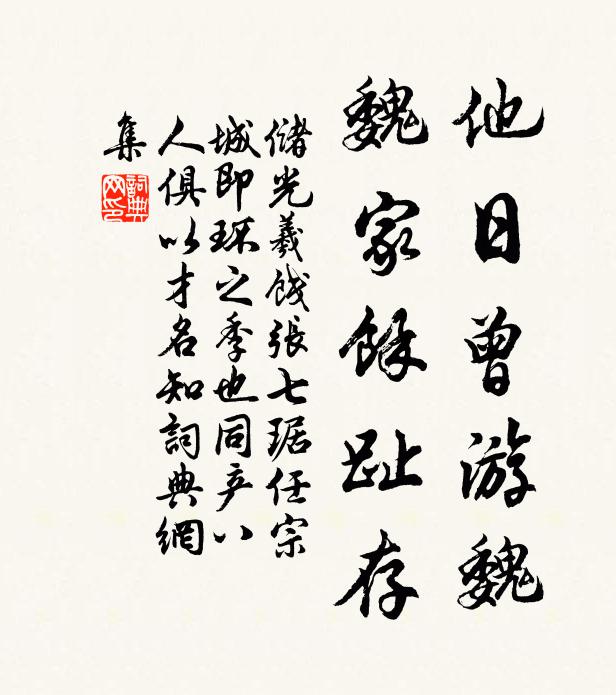 他日曾游魏
魏家餘趾存
儲光羲餞張七琚任宗
城即环之季也同产八
人俱以才名知詞典網
集
詞典网印